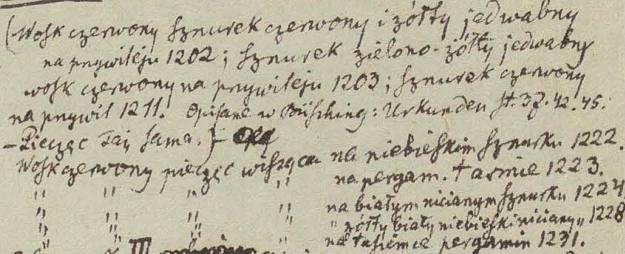 (Wosk czerwony sznurek czerwony i żółty jedwabny
na przywileju 1202; sznurek zielono-żółty jedwabny
wosk czerwony na przywileju 1203; sznurek czerwony
na przywil 1211. Opisane w Büsching: Urkunden st. 37. 42. 45.
– Pieczęć taj sama.
Wosk czerwony pieczęć wisząca na niebieskim sznurku 1222.
" " " " na pergam. taśmie 1223.
" " " " na białym nicianym sznurku 1224
" " " " " żółty biały niebieski niciany " 1228
" na tasiemce pergamin 1231.